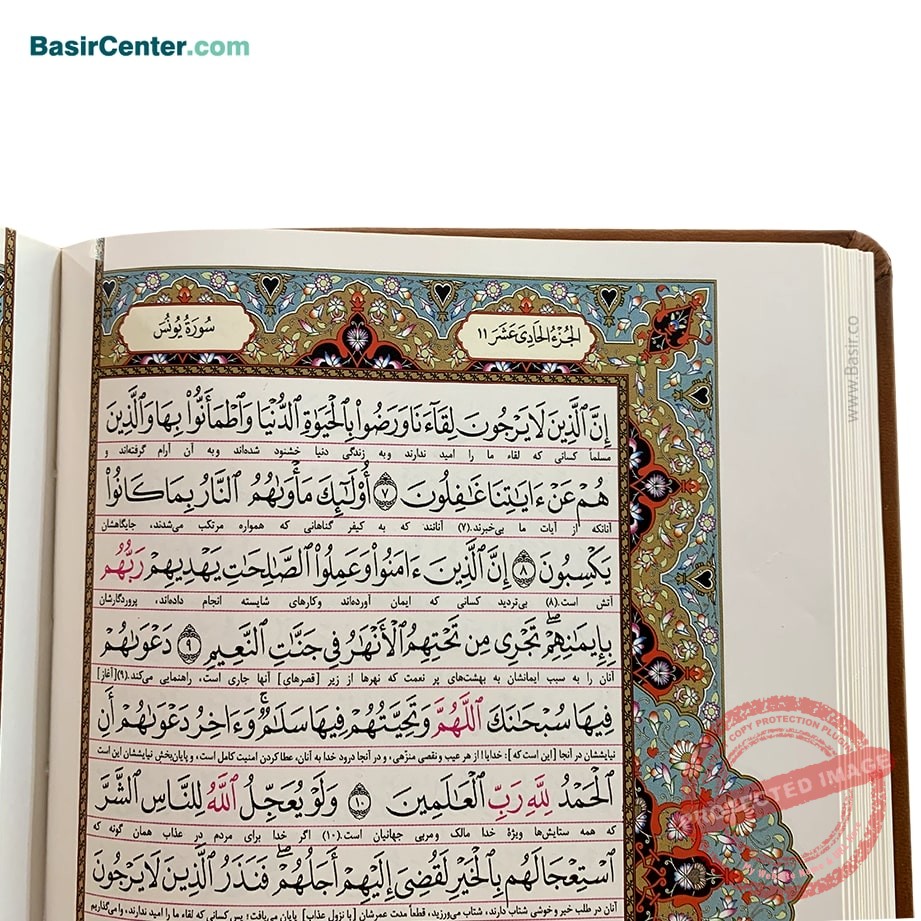 BasirCenter.com
سُورَةُ يُونُس
الجُزْءُ الحَادِی عَشَرَ ١١
إِنَّ ٱلَّذِينَ لَا يَرْجُونَ لِقَآءَنَا وَرَضُوا۟ بِٱلْحَيَوٰةِ ٱلدُّنْيَا وَٱطْمَأَنُّوا۟ بِهَا وَٱلَّذِينَ
مسلماً کسانی که لقاء ما را امید ندارند وبه زندگی دنیا خشنود شده‌اند وبه آن آرام گرفته‌اند و
هُمْ عَنْ ءَايَاتِنَا غَافِلُونَ ٧ أُوْلَـٰٓئِكَ مَأْوَىٰهُمُ ٱلنَّارُ بِمَا كَانُوا۟
آنانکه از آیات ما بی‌خبرند.(۷) آنانند که به کیفر گناهانی که همواره مرتکب می‌شدند، جایگاهشان
يَكْسِبُونَ ٨ إِنَّ ٱلَّذِينَ ءَامَنُوا۟ وَعَمِلُوا۟ ٱلصَّالِحَاتِ يَهْدِيهِمْ رَبُّهُم
آتش است.(۸) بی‌تردید کسانی که ایمان آورده‌اند وکارهای شایسته انجام داده‌اند، پروردگارشان
بِإِيمَانِهِمْ ۖ تَجْرِى مِن تَحْتِهِمُ ٱلْأَنْهَارُ فِى جَنَّاتِ ٱلنَّعِيمِ ٩ دَعْوَىٰهُمْ
آنان را به سبب ایمانشان به بهشت‌های پر نعمت که نهرها از زیر [قصرهای] آنها جاری است، راهنمایی می‌کند.(۹) [آغاز]
فِيهَا سُبْحَانَكَ ٱللَّهُمَّ وَتَحِيَّتُهُمْ فِيهَا سَلَامٌ ۚ وَءَاخِرُ دَعْوَىٰهُمْ أَنِ
نیایششان در آنجا [این است که]: خدایا! از هر عیب و نقصی منزّهی، و در آنجا درود خدا به آنان، عطا کردن امنیت کامل است، و پایان‌بخش نیایششان این است
ٱلْحَمْدُ لِلَّهِ رَبِّ ٱلْعَالَمِينَ ١٠ وَلَوْ يُعَجِّلُ ٱللَّهُ لِلنَّاسِ ٱلشَّرَّ
که همه ستایش‌ها ویژهٔ خدا مالک و مربی جهانیان است.(۱۰) اگر خدا برای مردم در عذاب همان گونه که
ٱسْتِعْجَالَهُم بِٱلْخَيْرِ لَقُضِىَ إِلَيْهِمْ أَجَلُهُمْ ۖ فَنَذَرُ ٱلَّذِينَ لَا يَرْجُونَ
آنان در طلب خیر و خوشی شتاب دارند، شتاب می‌ورزید، قطعاً مدت عمرشان [با نزول عذاب] پایان می‌یافت؛ پس کسانی که لقاء ما را امید ندارند، وا می‌گذاریم
www.Basir.co
COPY PROTECTION PLUGIN
PROTECTED IMAGE